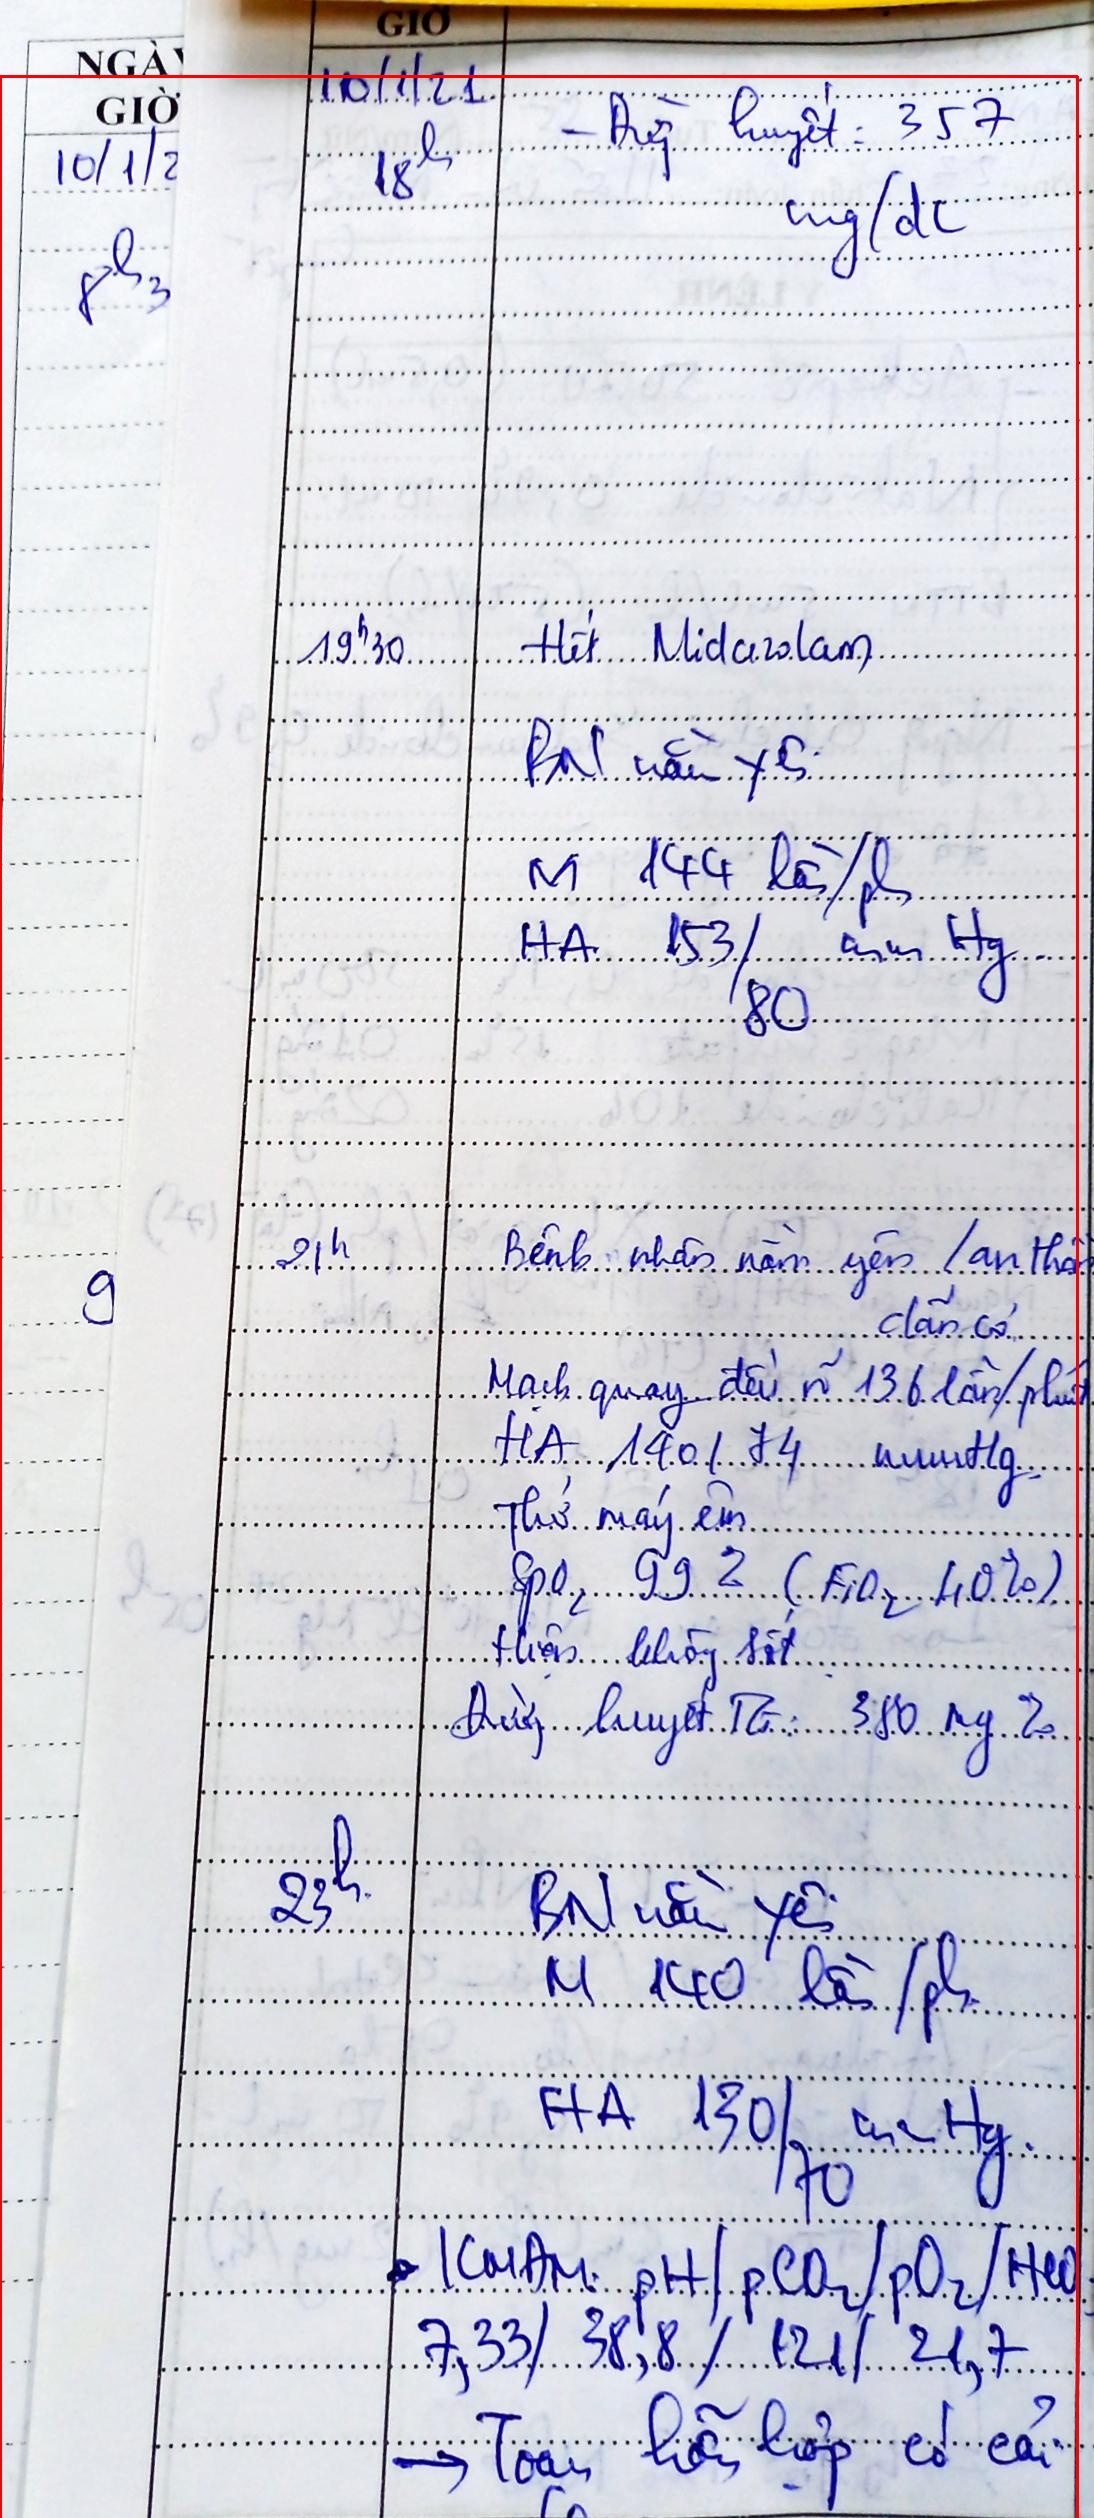 GIỜ
NGÀY
GIỜ
10/1/2
8h3
9
10/1/21
18h
- Đường huyết: 357
mg/dL
19h30
Hết Midazolam
BN nằm yên
M 144 lần/ph
HA 153/80 mmHg
21h
Bệnh nhân nằm yên / an thần
dãn cơ
Mạch quay đều rõ 136 lần/phút
HA 140/74 mmHg
Thở máy êm
SpO2 99% (FiO2 40%)
Hiện không sốt
Đường huyết TT: 380 mg%
23h
BN nằm yên
M 140 lần/ph
HA 130/70 mmHg.
KMĐM: pH/pCO2/pO2/HCO3
7,33/ 38,8 / 121/ 21,7
→ Toan hỗn hợp có cải